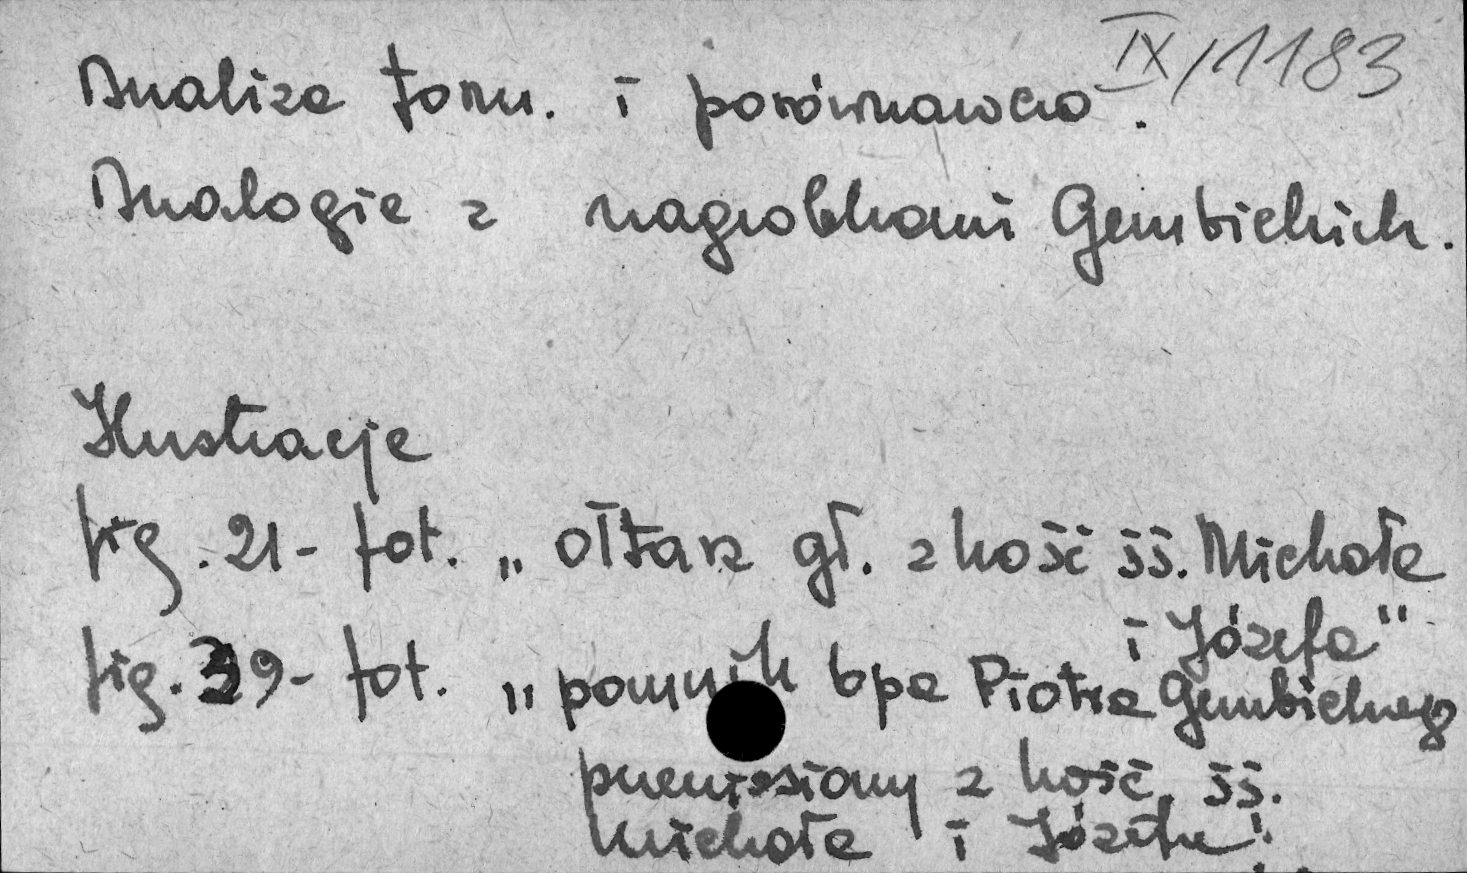 IX/1183
Analiza form. i porównawcza.
Analogie z nagrobkami Gembickich.
Ilustracje
fig. 21 - fot. „ołtarz gł. z kość śś. Michała
i Józefa"
fig. 39 - fot. „pomnik bpa Piotra Gembickiego
przeniesiony z kość. śś.
Michała i Józefa"